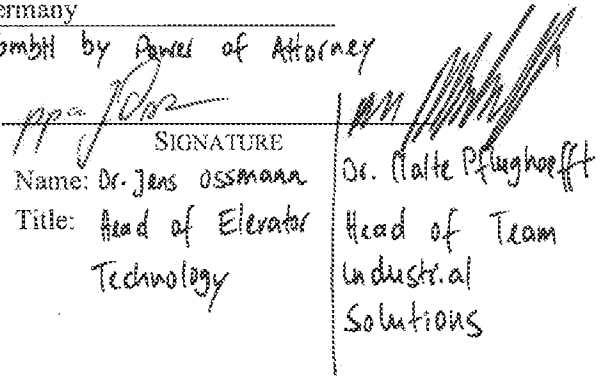 ermany
GmbH by Power of Attorney
ppa
SIGNATURE
Name: Dr. Jens Ossmann
Title: Head of Elevator
Technology
Dr. Malte Pflughoefft
Head of Team
Industrial
Solutions